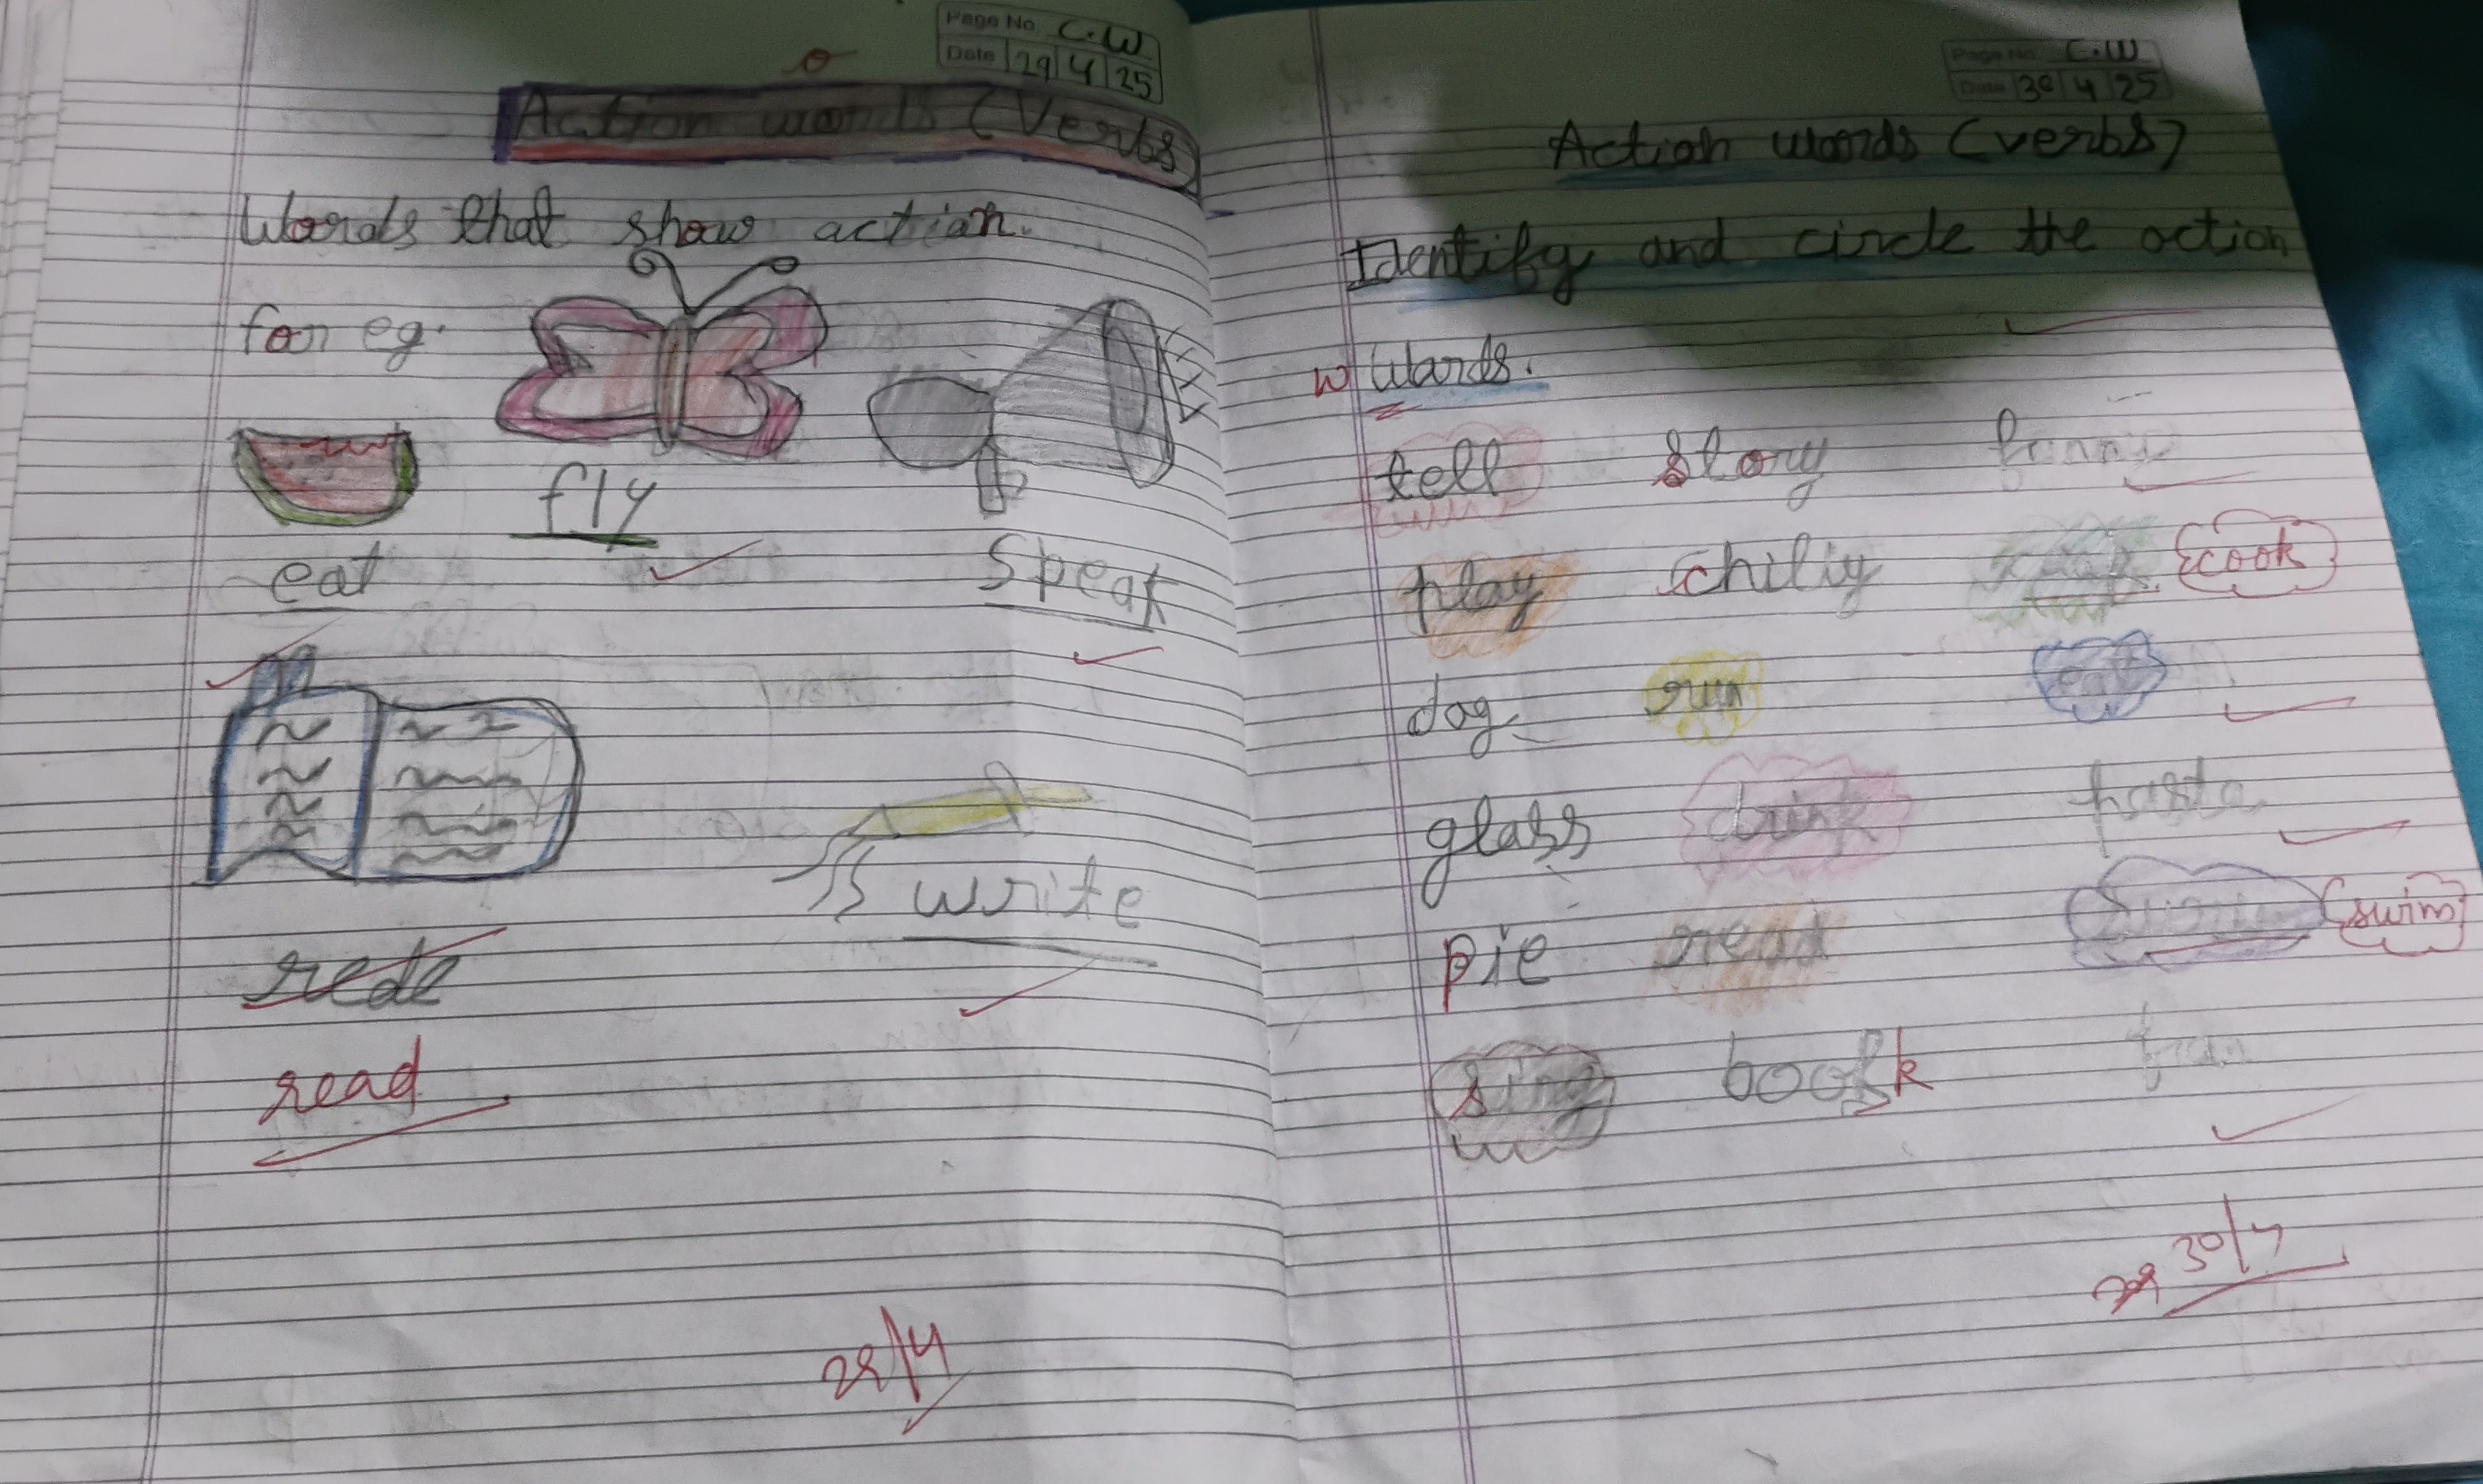 Page No. C.W
Date 29 4 25
Action words (Verbs
Words that show action.
for eg.
fly
eat
Speak
write
rede
read
29/4
Page No. C.W
Date 30 4 25
Action words (verbs)
Identify and circle the action
w Words.
tell story funny
play chiliy cook
dog run eat
glass drink pasta
pie read swim
sing book k fan
30/4